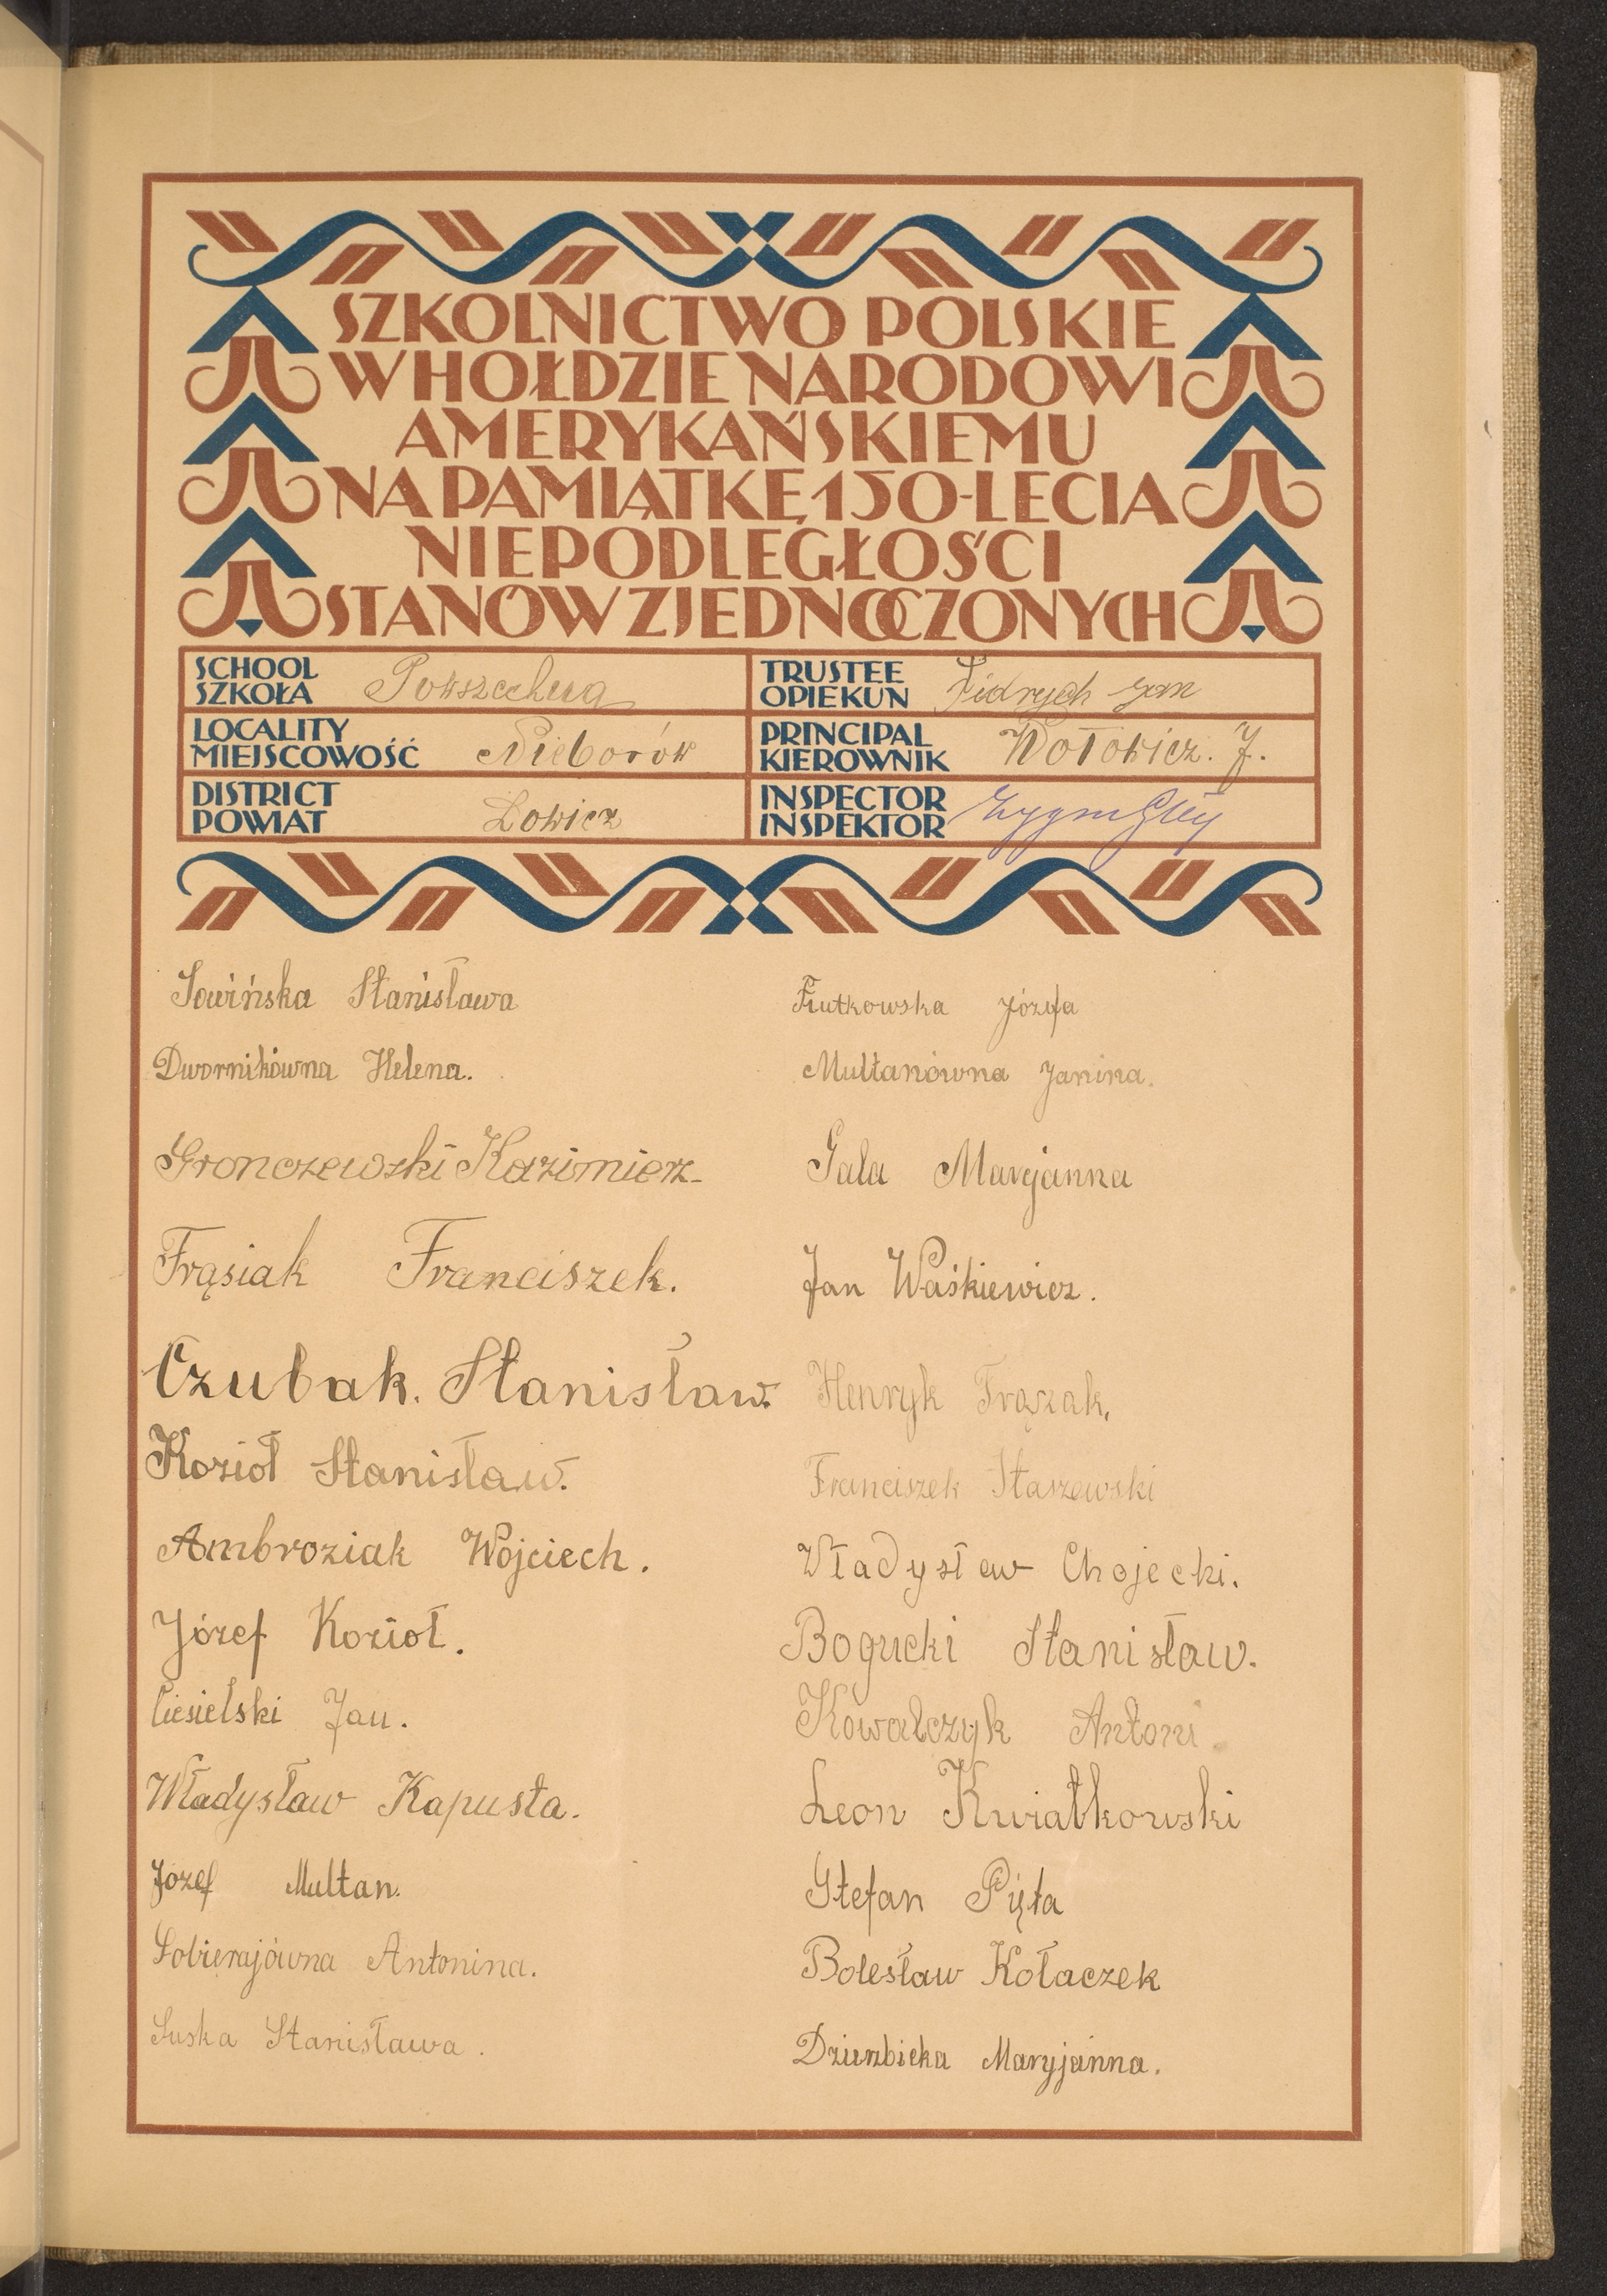 SZKOLNICTWO POLSKIE
W HOŁDZIE NARODOWI
AMERYKAŃSKIEMU
NA PAMIĄTKĘ 150-LECIA
NIEPODLEGŁOŚCI
STANÓW ZJEDNOCZONYCH
SCHOOL
SZKOŁA Powszechna
TRUSTEE
OPIEKUN Fidrych Jan
LOCALITY
MIEJSCOWOŚĆ Nieborów
PRINCIPAL
KIEROWNIK Wołowicz. J.
DISTRICT
POWIAT Łowicz
INSPECTOR
INSPEKTOR
Sowińska Stanisława
Dwornikówna Helena.
Gronczewski Kazimierz
Frąsiak Franciszek.
Czubak. Stanisław.
Kozioł Stanisław.
Ambroziak Wojciech.
Józef Kozioł.
Ciesielski Jan.
Władysław Kapusta.
Józef Multan.
Sobierajówna Antonina.
Suska Stanisława.
Rutkowska Józefa
Multanówna Janina.
Gala Maryjanna
Jan Waśkiewicz.
Henryk Frąszak.
Franciszek Staszewski
Władysław Chojecki.
Bogucki Stanisław.
Kowalczyk Antoni
Leon Kwiatkowski
Stefan Pięta
Bolesław Kołaczek
Dzierzbicka Maryjanna.